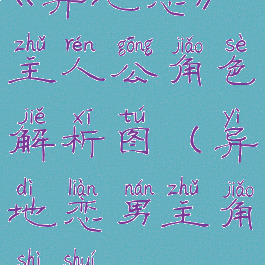 zhǔ rén gōng jiǎo sè
主人公角色
jiě xī tú yì
解析图（异
dì liàn nán zhǔ jiǎo
地恋男主角
shì shuí